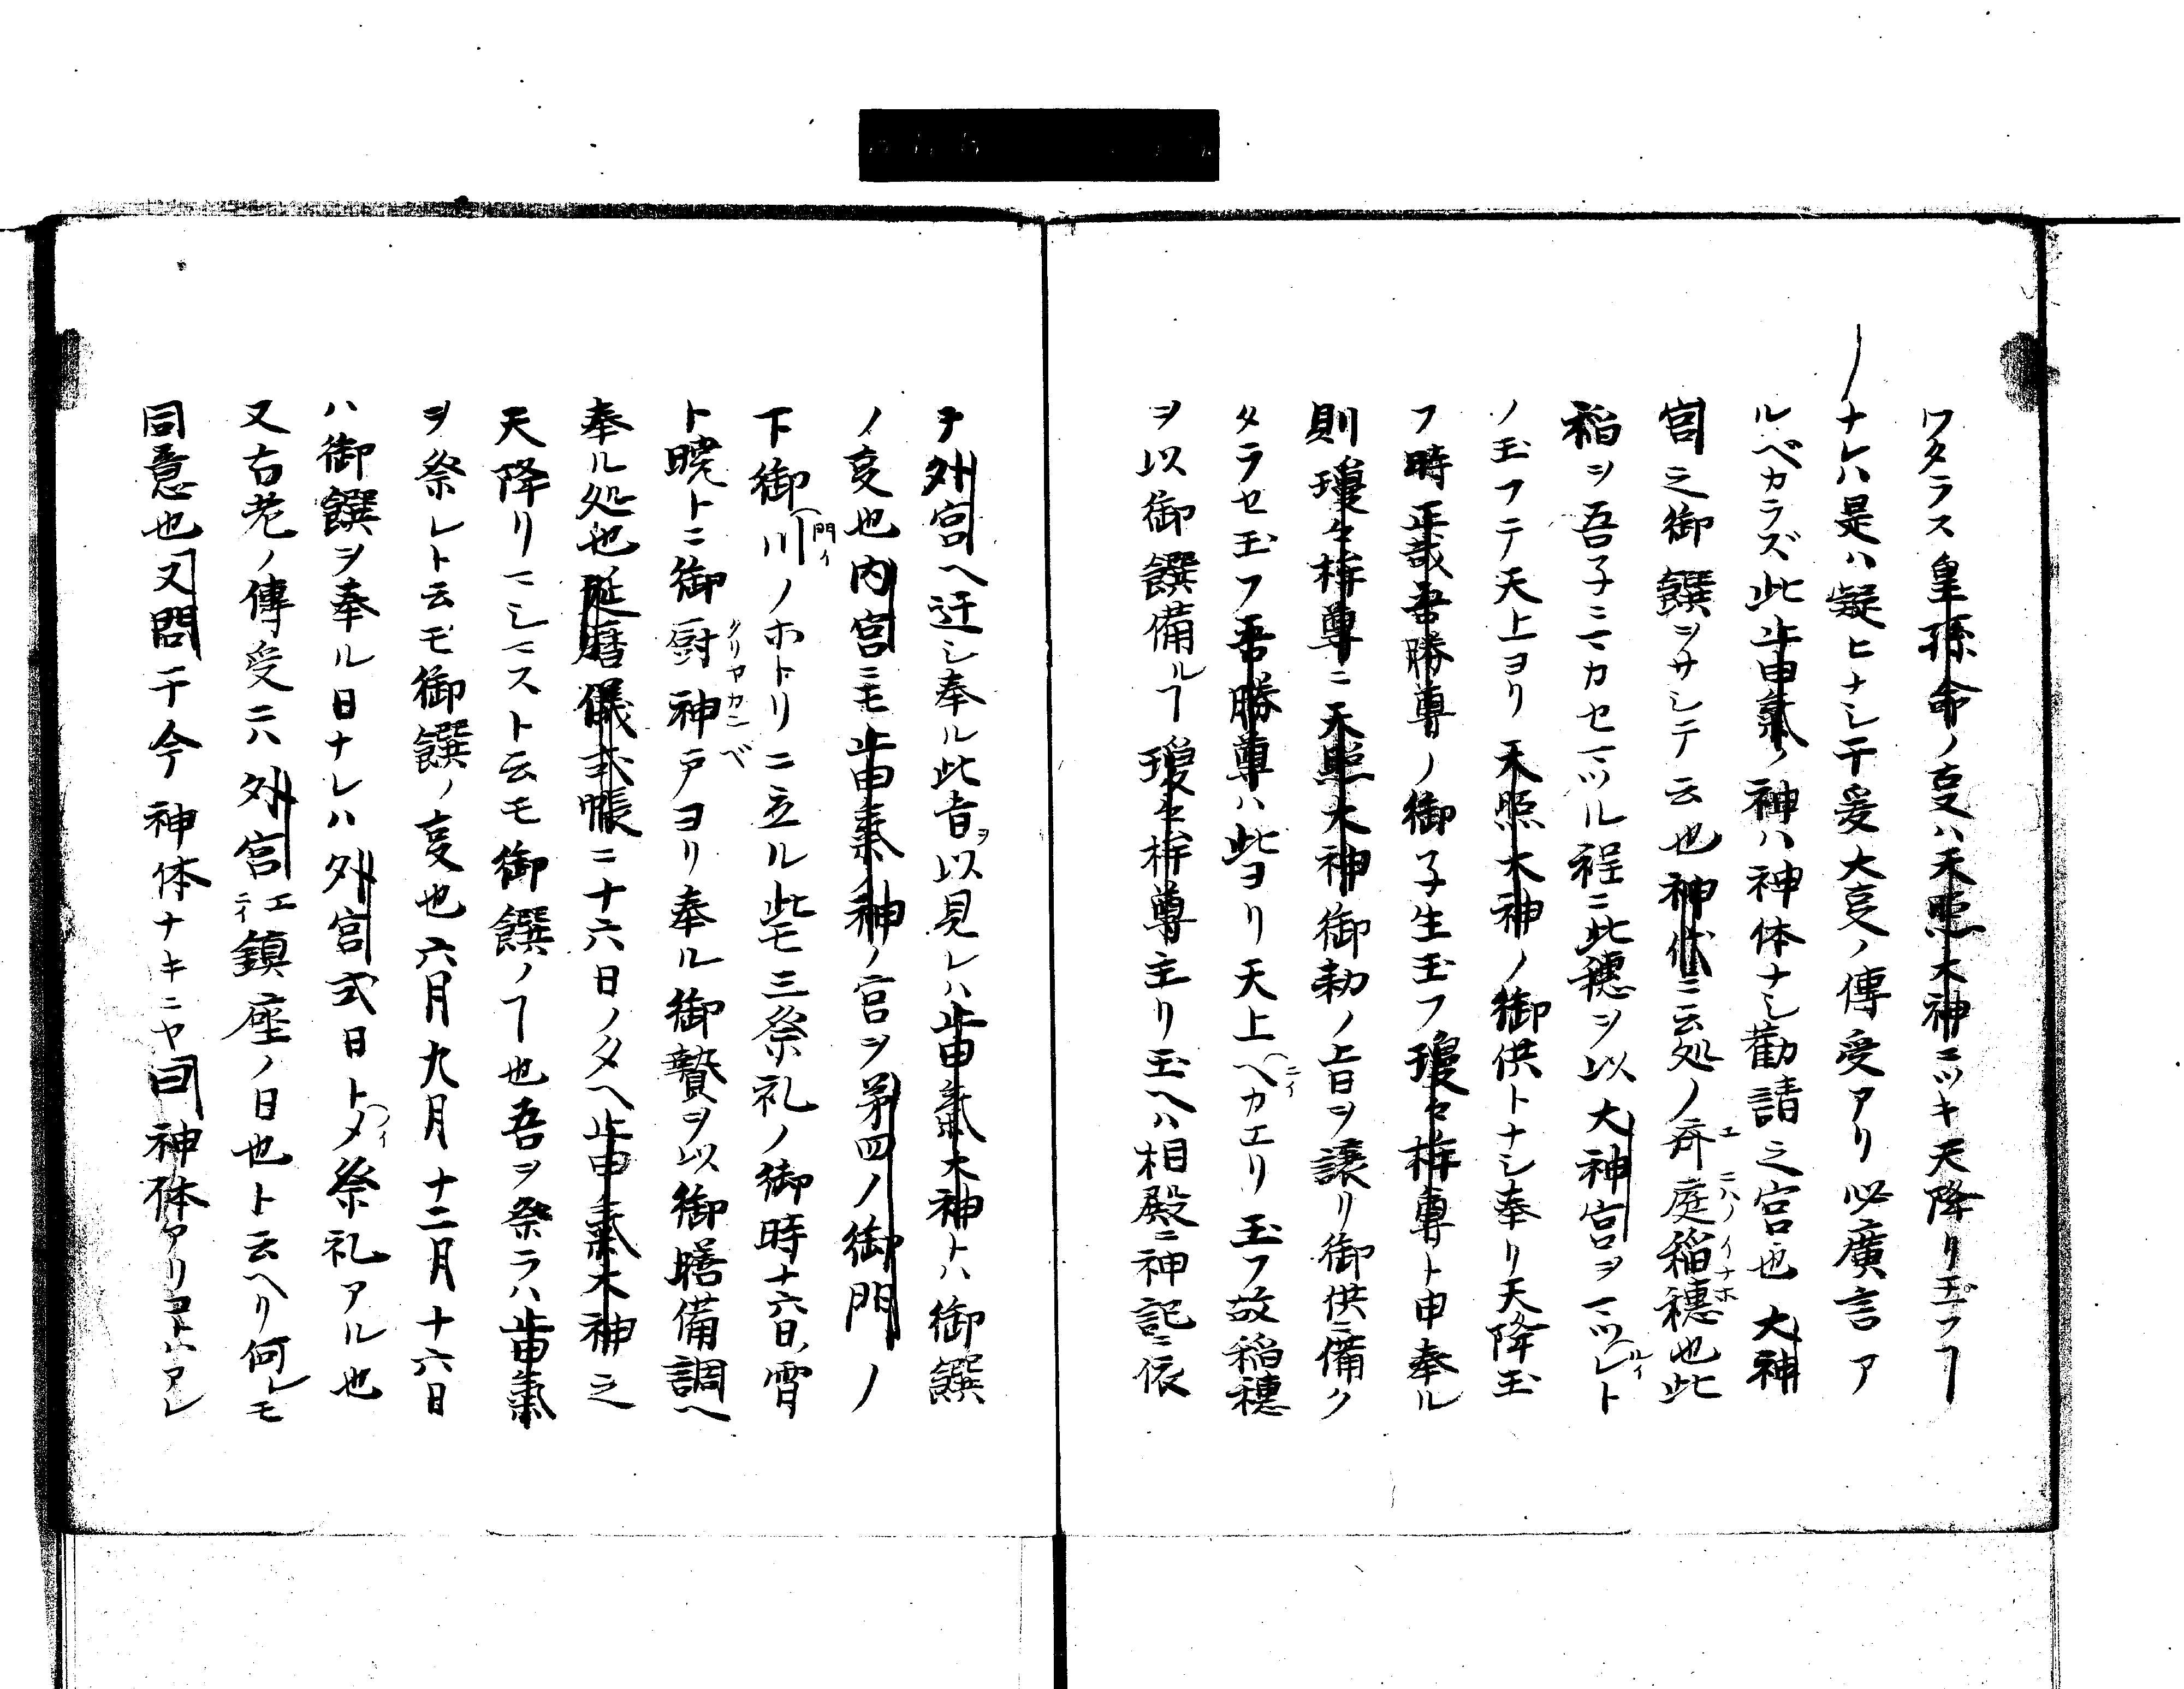 ワタラス皇孫命ノ叓ハ天照大神ニツキ天降リ玉フヿ
ナレハ是ハ疑ヒナシ干爰大叓ノ傳受アリ必廣言ア
ルベカラズ此止由氣ノ神ハ神体ナシ勸請之宮也大神
宮之御饌ヲサシテ云也神代ニ云処ノ斎庭稲穗也此
稲ヲ吾子ニマカセマツル程ニ此穗ヲ以大神宮ヲマツレト
ノ玉フテ天上ヨリ天照大神ノ御供トナシ奉リ天降玉
フ時正哉吾勝尊ノ御子生玉フ瓊々杵尊ト申奉ル
則瓊々杵尊ニ天照大神御勅ノ旨ヲ譲リ御供ニ備ク
タラセ玉フ吾勝尊ハ此ヨリ天上ヘカエリ玉フ故稲穗
ヲ以御饌備ルヿ瓊々杵尊主リ玉ヘハ相殿ニ神記ニ依
ヲ外宮ヘ迁シ奉ル此旨ヲ以見レハ止由氣大神トハ御饌
ノ叓也内宮ニモ止由氣ノ神ノ宮ヲ第四ノ御門ノ
下御川ノホトリニ立ル此モ三祭礼ノ御時十六日ノ宵
ト曉トニ御厨神戸ヨリ奉ル御贄ヲ以御膳備調ヘ
奉ル処也延暦儀式帳ニ十六日ノタヘ止由氣大神之
天降リマシマスト云モ御饌ノヿ也吾ヲ祭ラハ止由氣
ヲ祭レト云モ御饌ノ叓也六月九月十二月十六日
ハ御饌ヲ奉ル日ナレハ外宮式日トメ祭礼アル也
又古老ノ傳受ニハ外宮エ鎮座ノ日也ト云ヘリ何レモ
同意也又問干今神体ナキニヤ曰神体アリコトハアレ